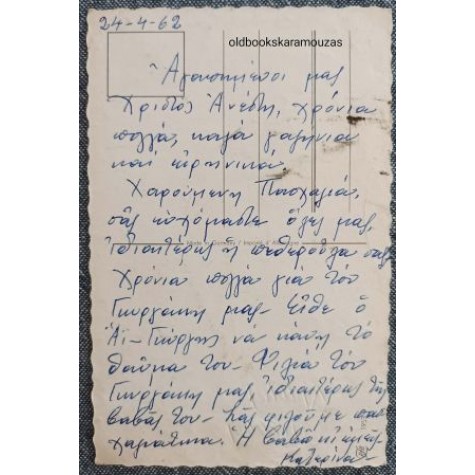 24-4-62
oldbookskaramouzas
Ἀγαπημένοι μας
Χριστός Ἀνέστη, χρόνια
πολλά, καλά γαλήνια
καί εἰρηνικά.
Χαρούμενη Πασχαλιά,
σᾶς εὐχόμαστε ὅλες μας,
ἰδιαιτέρως ἡ πεθερούλα σας
Χρόνια πολλά γιά τόν
Γιωργάκη μας - Εἴθε ὁ
Ἁϊ-Γιώργης νά κάνη τό
θαῦμα του - Φιλιά τόν
Γιωργάκη μας, ἰδιαιτέρως τῆς
βαβᾶς του - Σᾶς φιλοῦμε
Ἡ βαβά
Κατερίνα